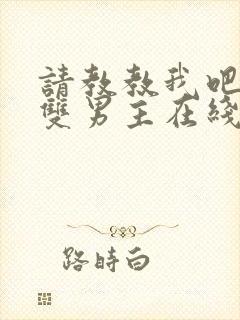 請教教我吧
雙男主在綫
路時白